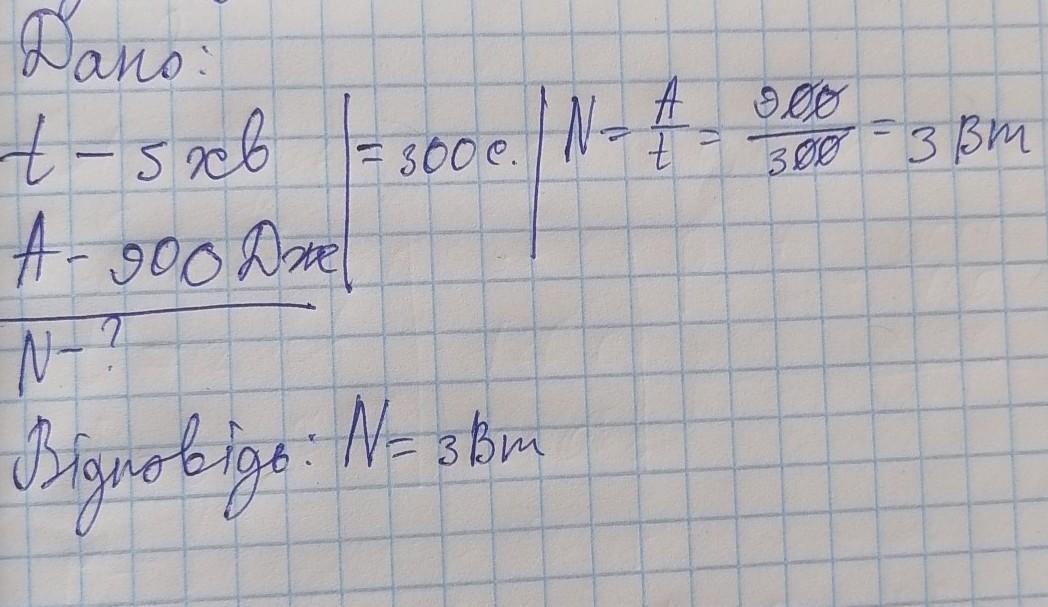 Дано:
t - 5 хв | = 300 с. | N = A/t = 900/300 = 3 Вт
A - 900 Дж
N - ?
Відповідь: N = 3 Вт